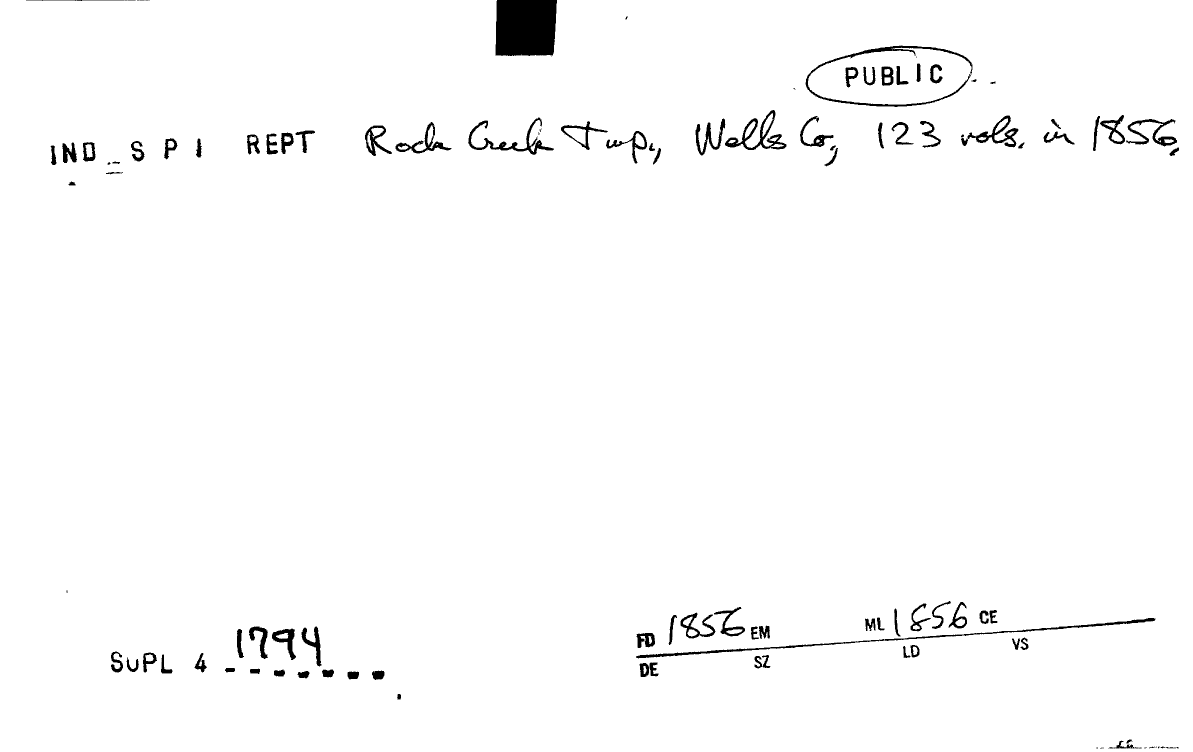 PUBLIC
IND S P I REPT Rock Creek Twp., Wells Co, 123 vols. in 1856,
SuPL 4 1794
FD 1856 EM ML 1856 CE
DE SZ LD VS